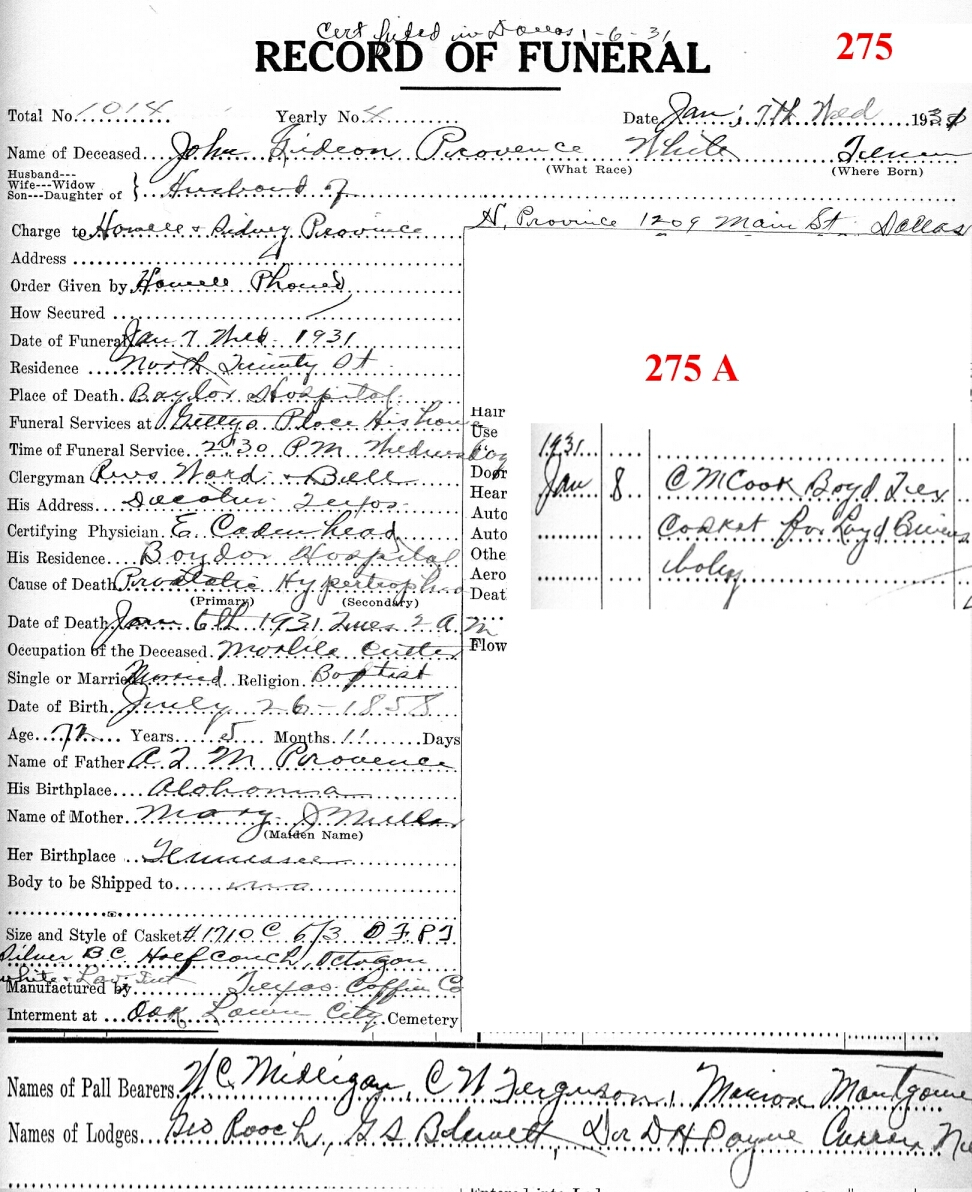 Cert filed in Dallas 1-6-31
RECORD OF FUNERAL
275
Total No. 1014 Yearly No. 4 Date Jan. 7th Wed 1931
Name of Deceased John Gideon Provence White Tenn
(What Race) (Where Born)
Husband---
Wife---Widow
Son---Daughter of } Husband of
Charge to Howell & Sidney Province H. Province 1209 Main St. Dallas
Address
Order Given by Howell Phoned
How Secured
Date of Funeral Jan 7 Wed. 1931
Residence North Trinity St
275 A
Place of Death. Baylor Hospital
Funeral Services at Place His home
Time of Funeral Service. 2:30 P.M. Wednesday
Clergyman Revs Ward & Bell
His Address. Decatur Texas
Certifying Physician. E. Cadenhead
His Residence. Baylor Hospital
Cause of Death Prostatic Hypertrophy
(Primary) (Secondary)
Date of Death Jan 6th 1931 Tues 2 A.M
Occupation of the Deceased. Marble Cutter
Single or Married Married Religion. Baptist
Date of Birth. July 26-1858
Age. 72 Years 5 Months 11 Days
Name of Father A. M Provence
His Birthplace Alabama
Name of Mother Mary J Miller
(Maiden Name)
Her Birthplace Tennessee
Body to be Shipped to
Size and Style of Casket #1710 C 6/3 O F P T
Silver B.C. Half Couch, Octagon
White & Lav. Int
Manufactured by Texas Coffin Co
Interment at Oak Lawn City Cemetery
Hair
Use
Door
Hear
Auto
Auto
Othe
Aero
Deat
Flow
1931
Jan 8 C M Cook Boyd Tex
Casket for Loyd
baby
Names of Pall Bearers. H C. Milligan, C W Ferguson, Marion Montgome
Names of Lodges Geo Rooch, G S Dr D H Payne Curren
Entered into Led